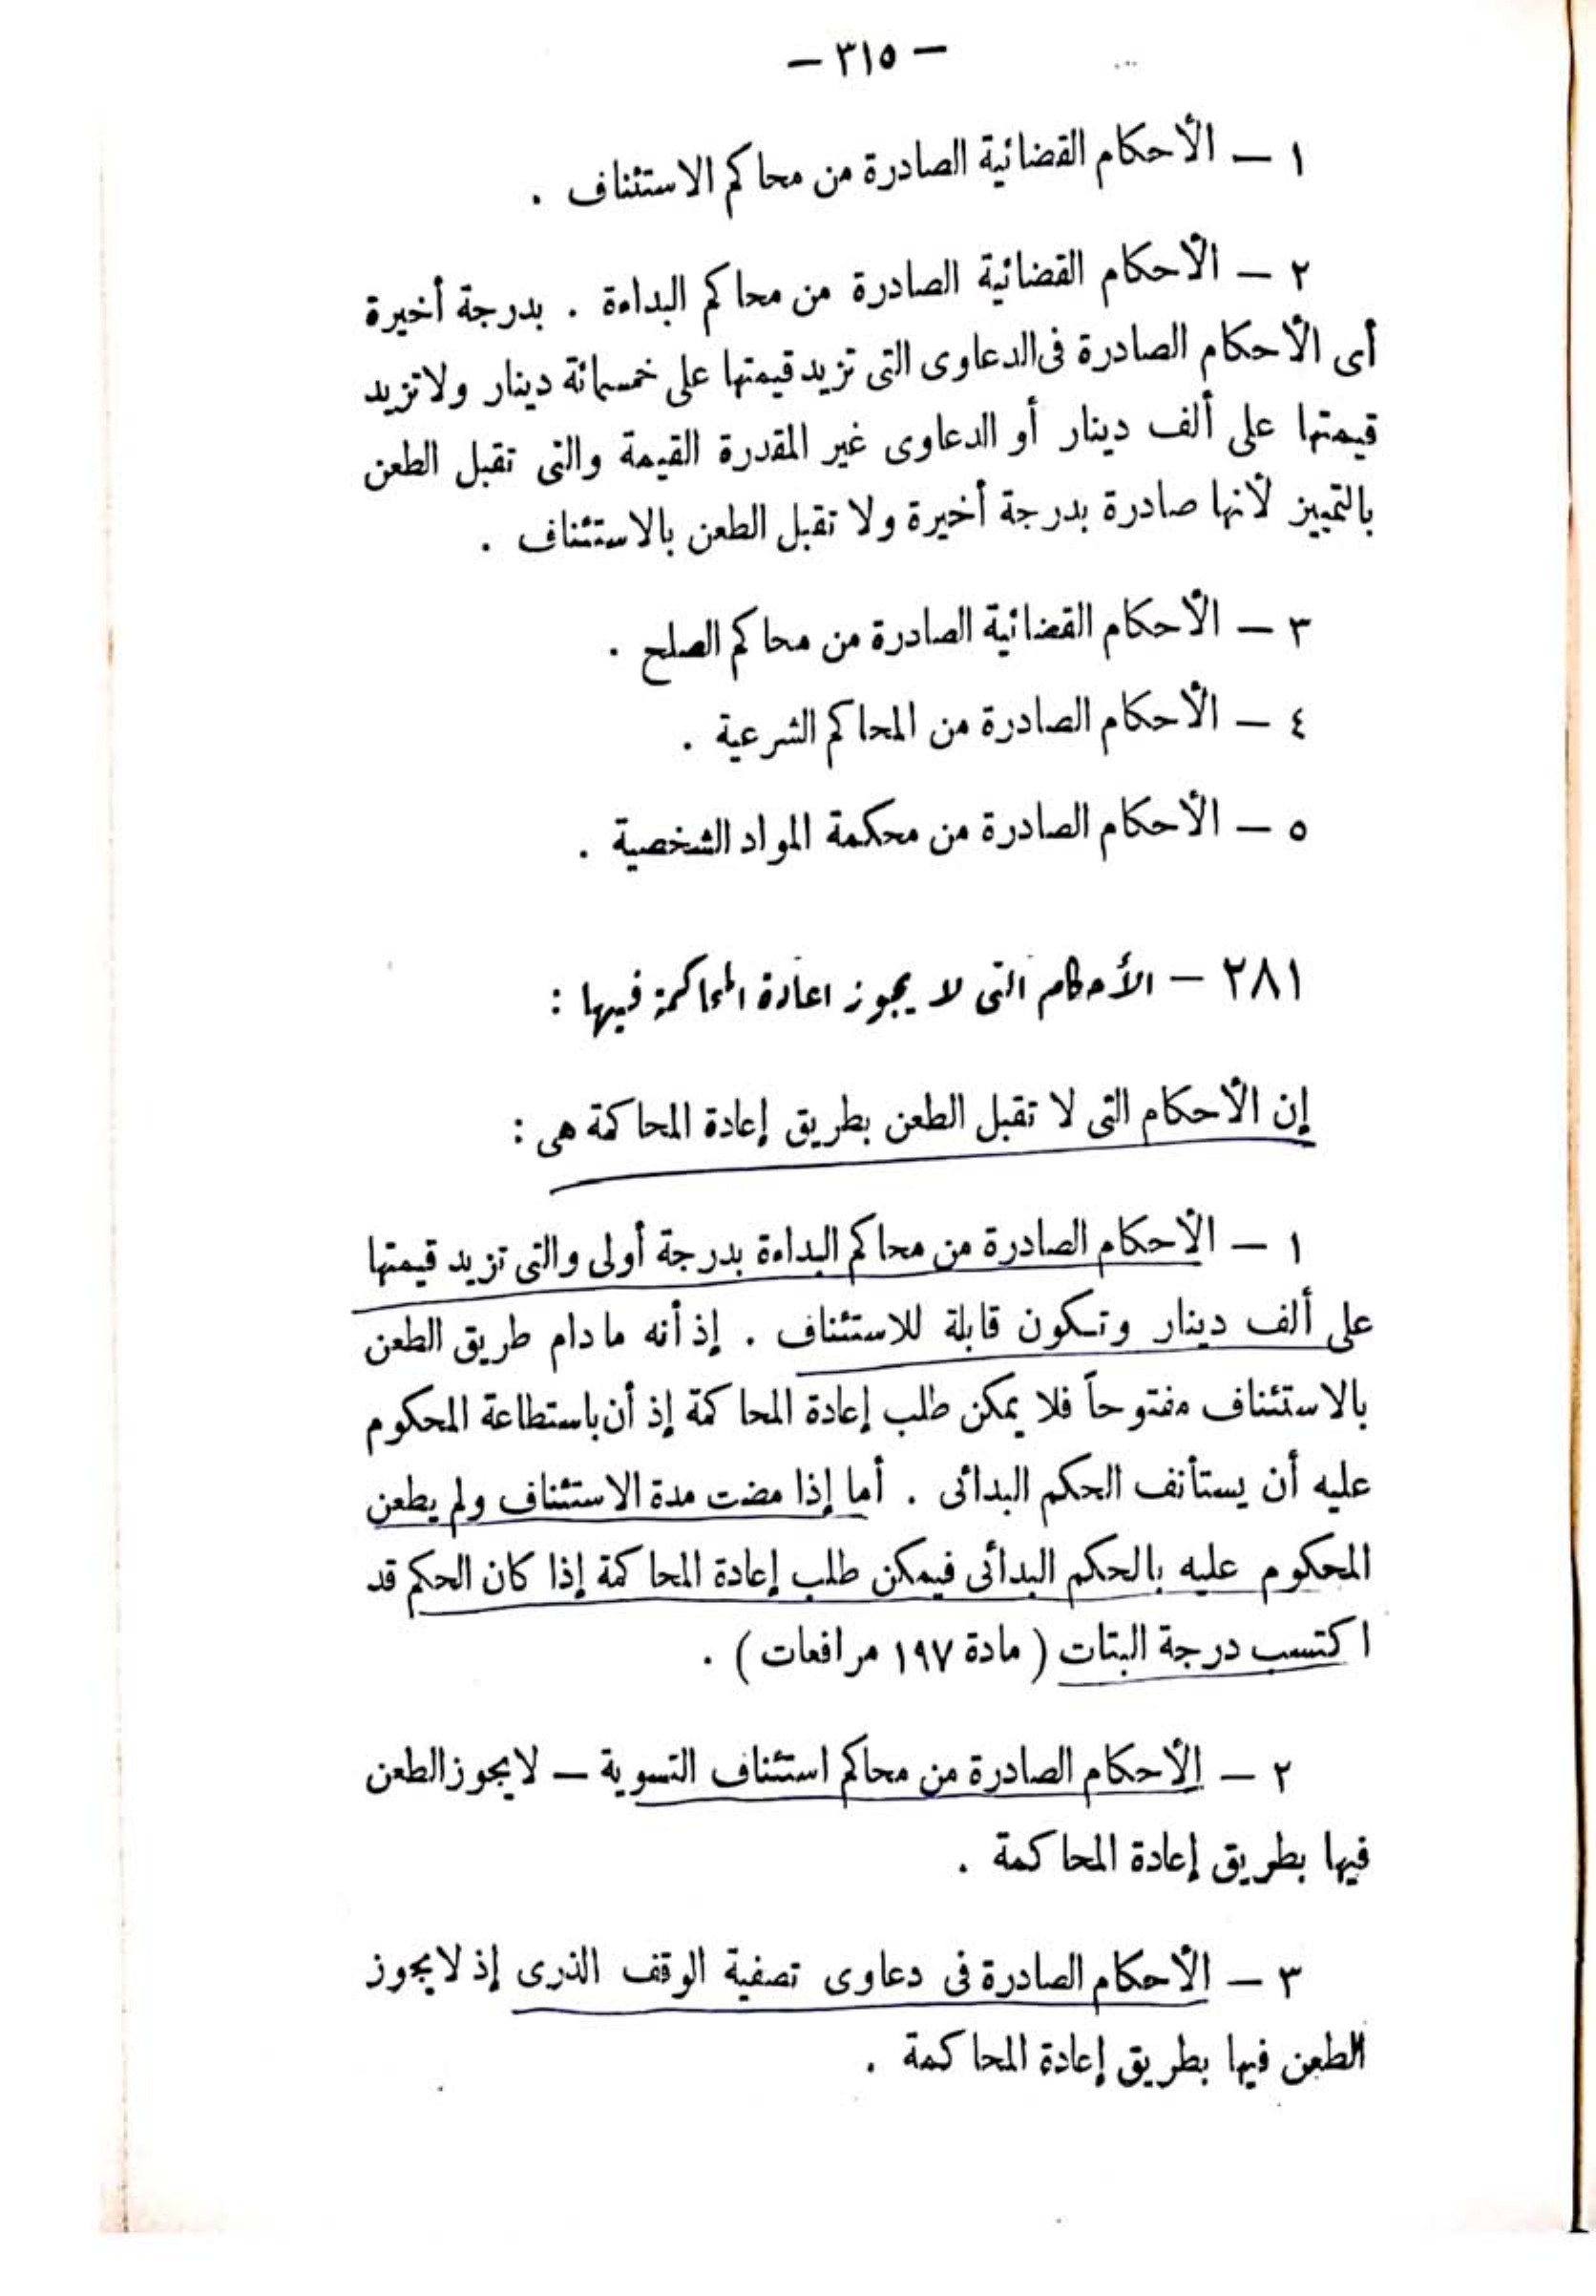 — ٣١٥ —
١ — الأحكام القضائية الصادرة من محاكم الاستئناف .
٢ — الأحكام القضائية الصادرة من محاكم البداءة . بدرجة أخيرة
أى الأحكام الصادرة فى الدعاوى التى تزيد قيمتها على خمسمائة دينار ولا تزيد
قيمتها على ألف دينار أو الدعاوى غير المقدرة القيمة والتى تقبل الطعن
بالتمييز لأنها صادرة بدرجة أخيرة ولا تقبل الطعن بالاستئناف .
٣ — الأحكام القضائية الصادرة من محاكم الصلح .
٤ — الأحكام الصادرة من المحاكم الشرعية .
٥ — الأحكام الصادرة من محكمة المواد الشخصية .
٢٨١ — الأحكام التى لا يجوز اعادة المحاكمة فيها :
إن الأحكام التى لا تقبل الطعن بطريق إعادة المحاكمة هى :
١ — الأحكام الصادرة من محاكم البداءة بدرجة أولى والتى تزيد قيمتها
على ألف دينار وتكون قابلة للاستئناف . إذ أنه ما دام طريق الطعن
بالاستئناف مفتوحاً فلا يمكن طلب إعادة المحاكمة إذ أن باستطاعة المحكوم
عليه أن يستأنف الحكم البدائى . أما إذا مضت مدة الاستئناف ولم يطعن
المحكوم عليه بالحكم البدائى فيمكن طلب إعادة المحاكمة إذا كان الحكم قد
اكتسب درجة البتات ( مادة ١٩٧ مرافعات ) .
٢ — الأحكام الصادرة من محاكم استئناف التسوية — لا يجوز الطعن
فيها بطريق إعادة المحاكمة .
٣ — الأحكام الصادرة فى دعاوى تصفية الوقف الذرى إذ لا يجوز
الطعن فيها بطريق إعادة المحاكمة .